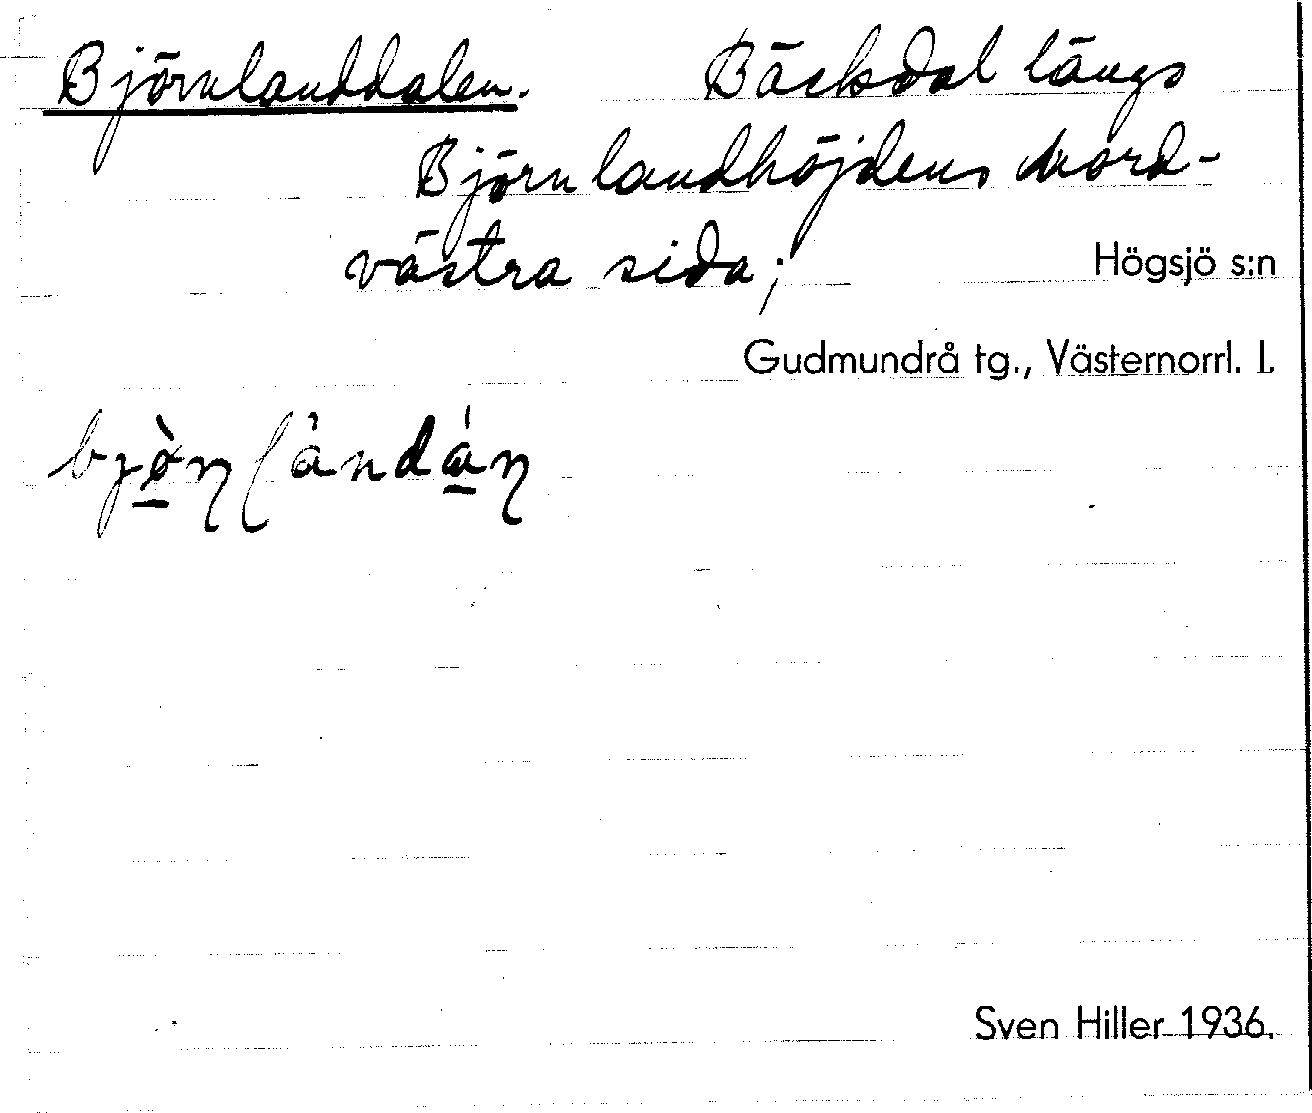 Björnlanddalen. Bäckdal längs
Björnlandhöjdens nord-
västra sida;
Högsjö s:n
Gudmundrå tg., Västernorrl. l.
Sven Hiller 1936.